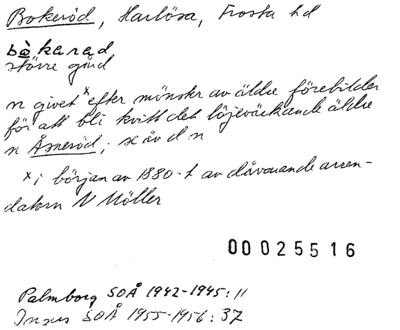 Bokeröd, Harlösa, Frosta hd
bokarad
större gård
n givet x efter mönster av äldre förebilder
för att bli kvitt det löjeväckande äldre
n Åsneröd; se äv d n
x i början av 1880-t av dåvarande arren-
datorn N Möller
00025516
Palmborg SOÅ 1942-1945:11
Ingers SOÅ 1955-1956:37